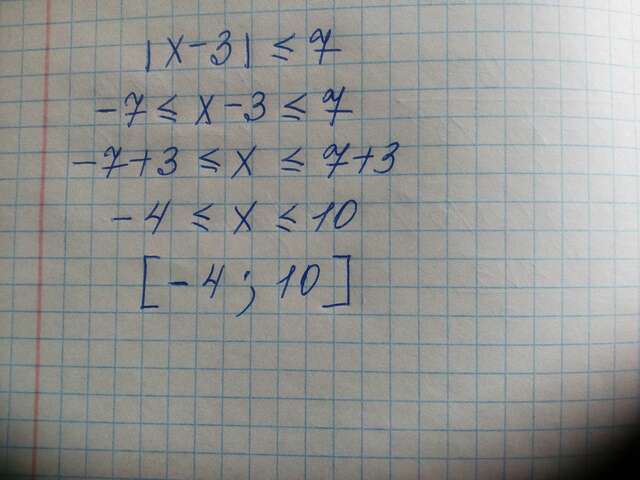 |x-3| ≤ 7
-7 ≤ x-3 ≤ 7
-7+3 ≤ x ≤ 7+3
-4 ≤ x ≤ 10
[-4; 10]